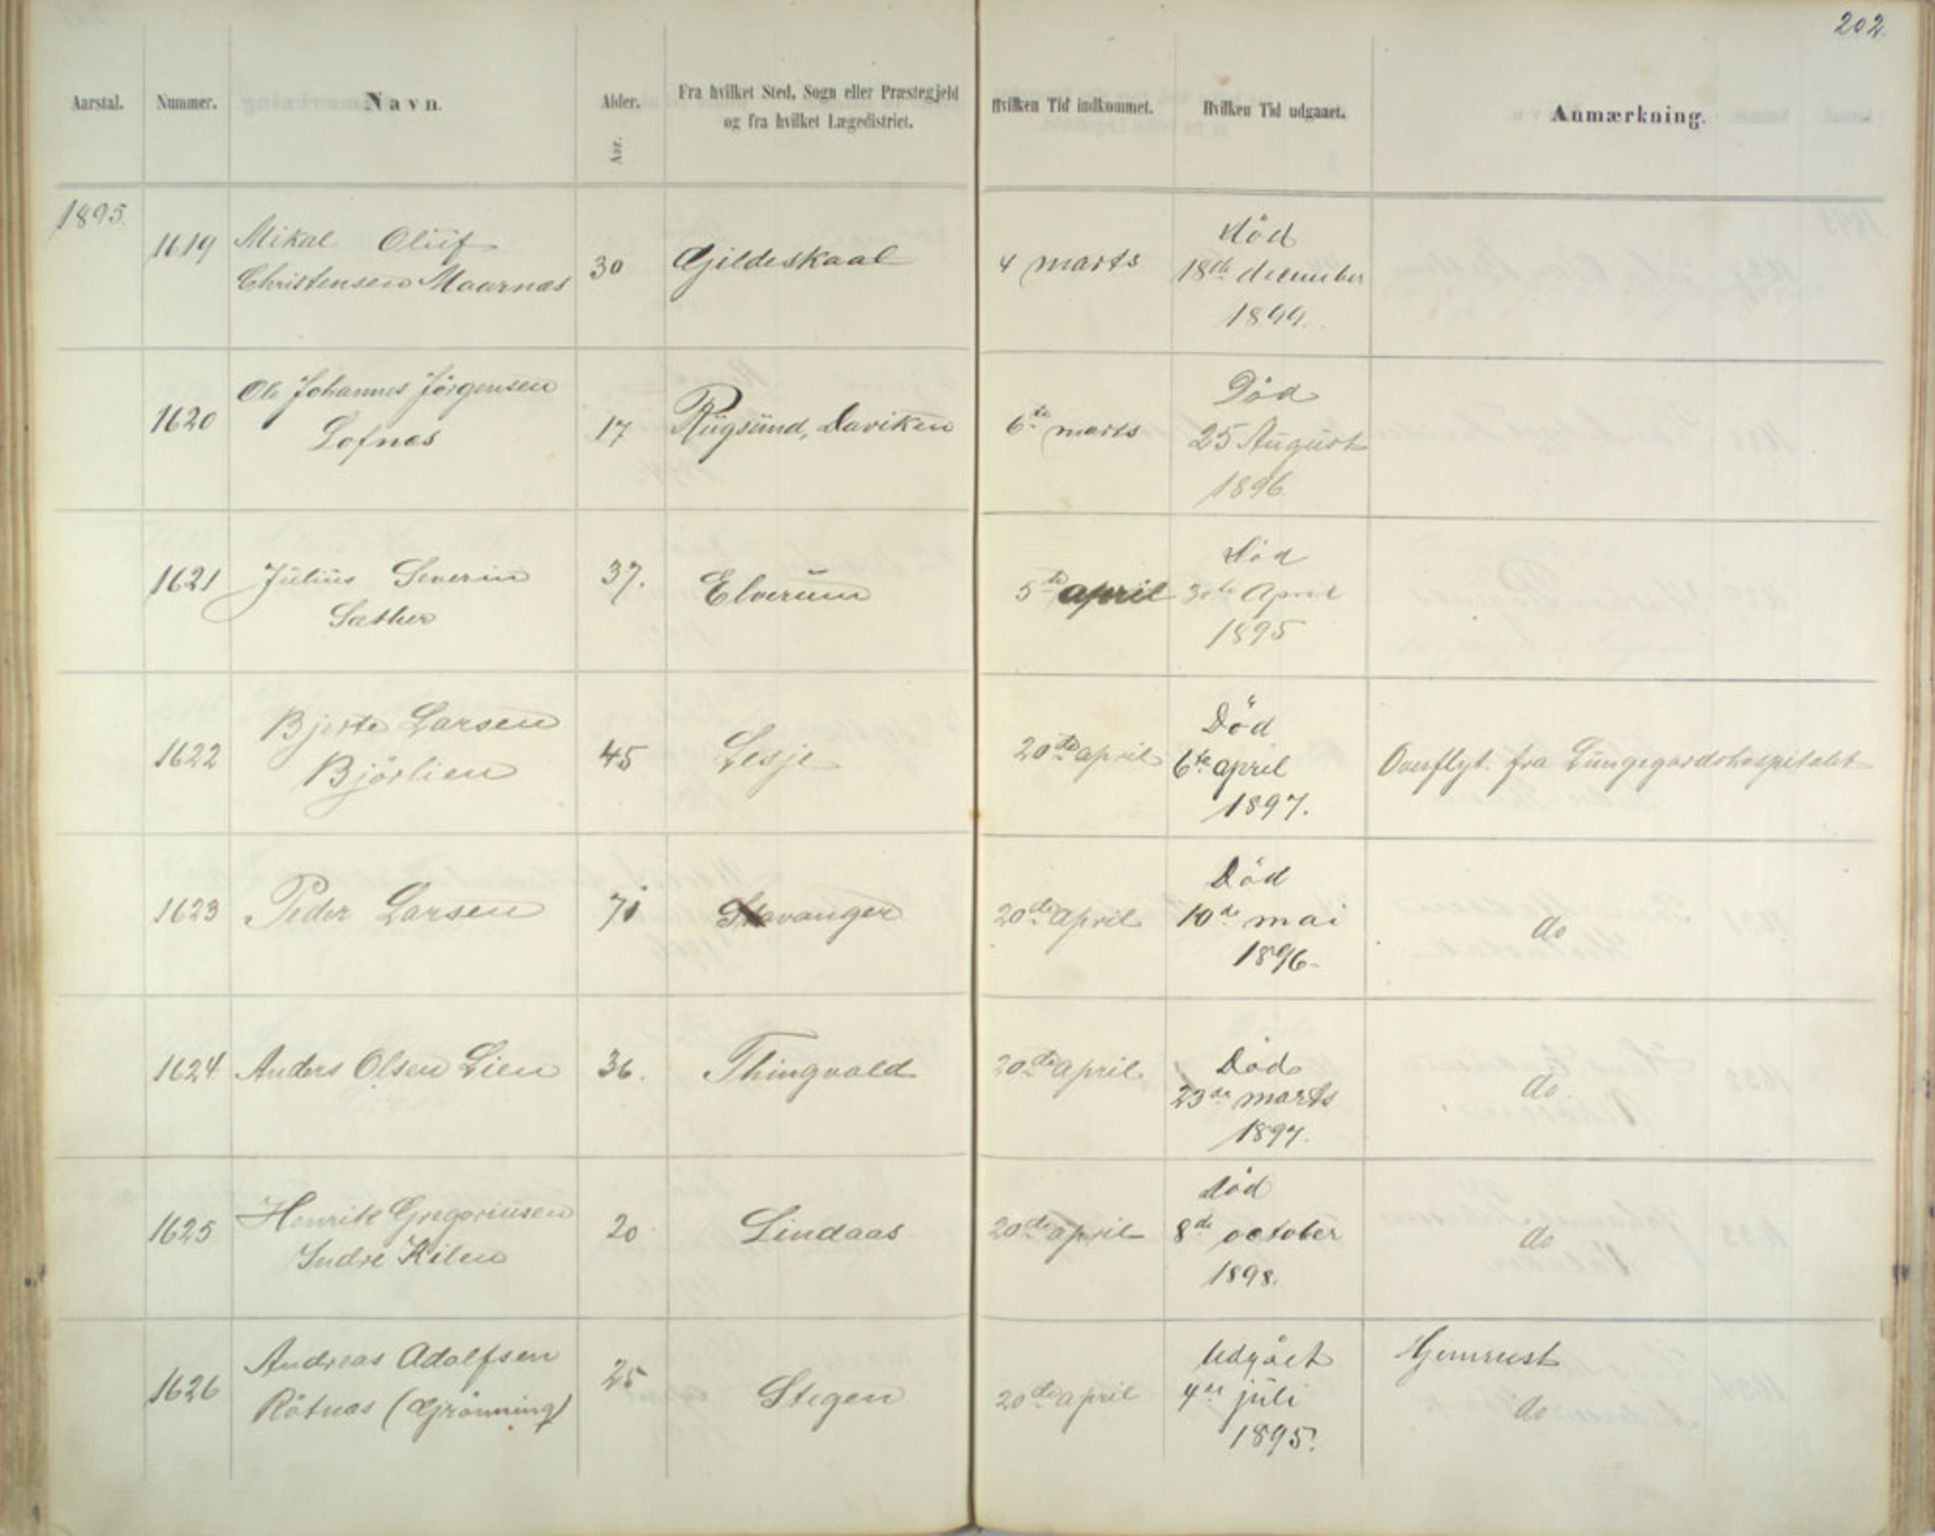 202.
Aarstal. Nummer. Navn. Alder. Fra hvilket Sted, Sogn eller Præstegjeld Hvilken Tid indkommet. Hvilken Tid udgaaet. Anmærkning.
Aar. og fra hvilket Lægedistrict.
1895.
1619 Mikal Oluf 30 Gjildeskaal 4 marts död
Christensen Maarnæs 18de december
1899.
1620 Ole Johannes Jörgensen 17 Rugsund, Daviken 6te marts Död
Lofnæs 25 August
1896
1621 Julius Severin 37. Elverum 5te april Död
Sæther 30te April
1895
1622 Bjerte Larsen 45 Lesje 20de april Död Overflyt. fra Lungegardshospitalet
Björlien 6te april
1897.
1623 Peder Larsen 71 Stavanger 20de april Död do
10de mai
1896.
1624 Anders Olsen Lien 36. Thingvold 20de april Död do.
23de marts
1897.
1625 Henrik Gregoriusen 20 Lindaas 20de april död do
Indre Kilen 8de october
1898.
1626 Andreas Adolfsen 25 Stegen 20de april Udgået Hjemreist
Rötnæs (Grönning) 4de juli do
1895.